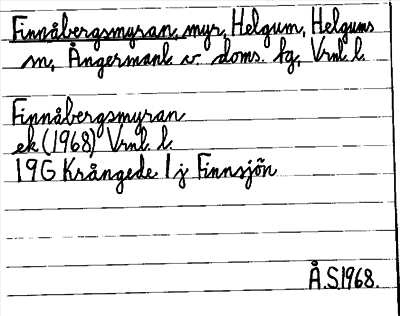 Finnåbergsmyran, myr, Helgum, Helgums
sn, Ångermanl v. doms. tg, Vrnl. l.
Finnåbergsmyran
ek (1968) Vrnl. l.
19G Krångede 1 j Finnsjön
Å.S.1968.